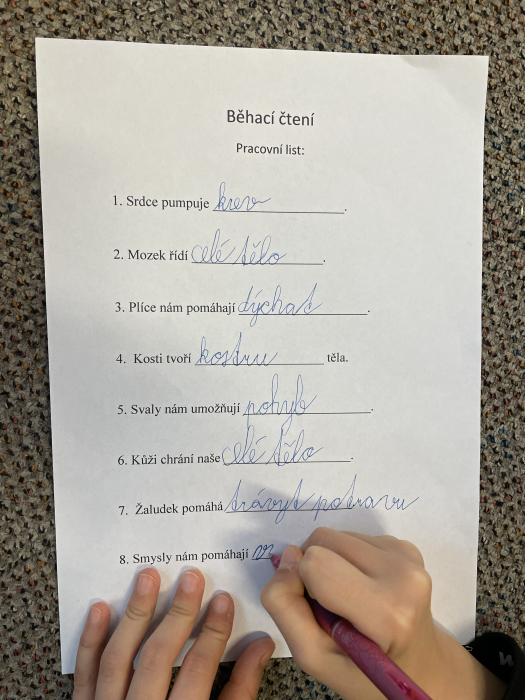 Běhací čtení
Pracovní list:
1. Srdce pumpuje krev.
2. Mozek řídí celé tělo.
3. Plíce nám pomáhají dýchat.
4. Kosti tvoří kostru těla.
5. Svaly nám umožňují pohyb.
6. Kůži chrání naše celé tělo.
7. Žaludek pomáhá trávyt potravu
8. Smysly nám pomáhají